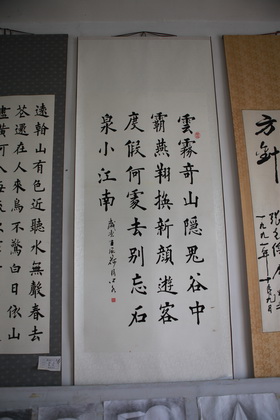 方針
一九九一年
雲霧奇山隱鬼谷中
霸燕翔換新顏遊客
度假何處去別忘石
泉小江南
遠看山有色近聽水無聲春去
花還在人來鳥不驚白日依山
盡黃河入海